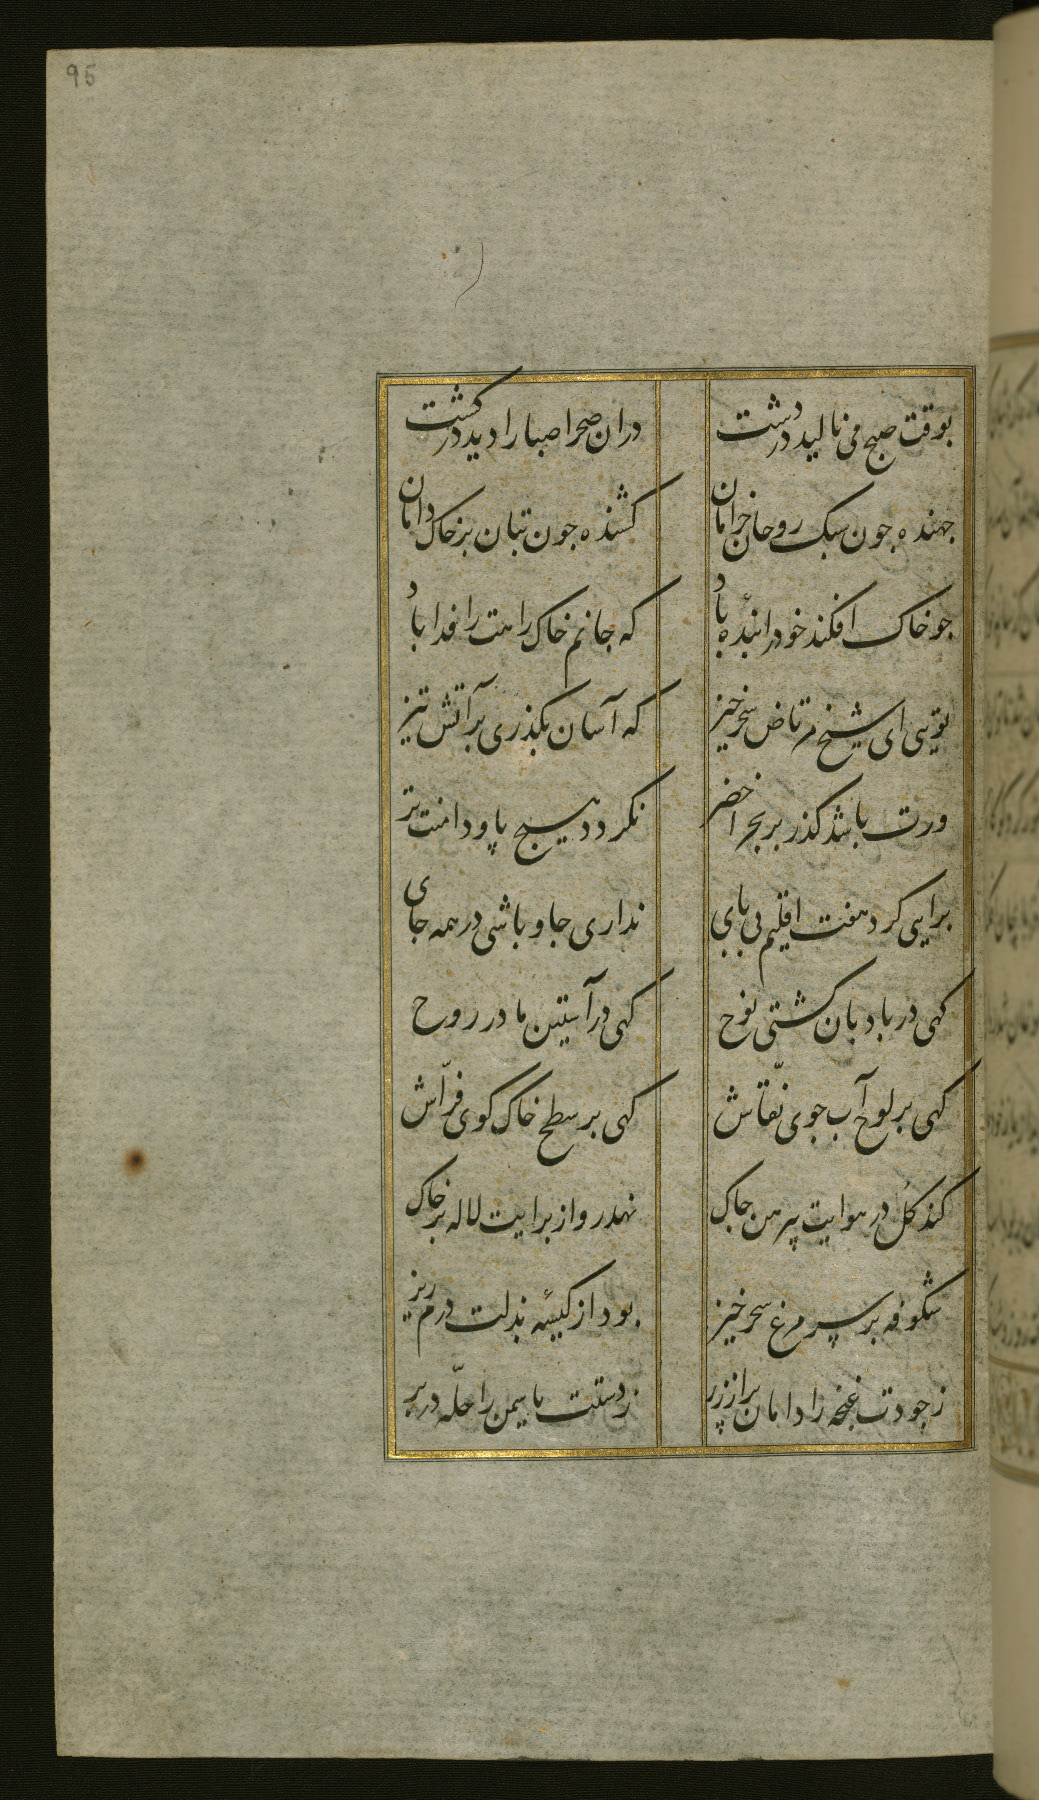 95
بوقت صبح می نالید در دشت
دران صحرا صبا را دید در گشت
جهنده چون سبک روحان خرامان
کشنده چون تبان بر خاک دامان
چو خاک افکند خود را بنده باد
که جانم خاک راهت را فدا باد
تویی ای شیخ مرتاض سحرخیز
که آسان بگذری بر آتش تیز
ورت باشد گذر بر بحر اخضر
نگردد هیچ پا و دامنت تر
برایی گرد هفت اقلیم بی پای
نداری جا و باشی در همه جای
گهی در بادبان کشتی نوح
گهی در آستین مادر روح
گهی بر لوح آب جوی نقّاش
گهی بر سطح خاک کوی فرّاش
کند گل در هوایت پیرهن چاک
نهد رو از برایت لاله بر خاک
شکوفه بر سر مرغ سحرخیز
بود از کیسهٔ بذلت درم ریز
ز جودت غنچه را دامان پر از زر
ز دستت یاسمن را حلّه در بر